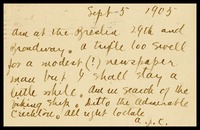 Sept-5 1905
Am at the Breslin 29th and
Broadway. a trifle too swell
for a modest (?) newspaper
man but I shall stay a
little while. Am in search of the
viking ship. ditto the Admirable
Crichton. All right to date.
A.J.C.